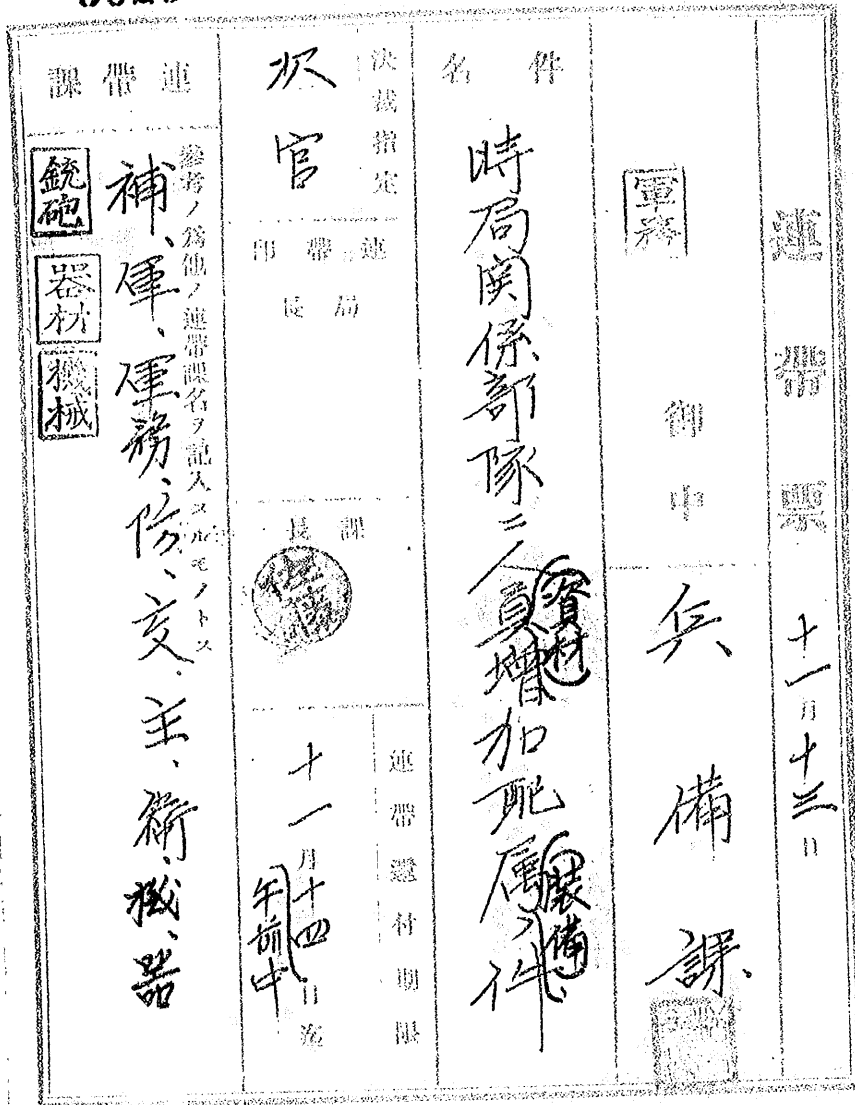 連帶票 十一月十三日
軍務 御中 兵備課
件名
時局関係部隊ニ人員増加配属ノ件
資材
装備
決裁指定
次官
連帶印
局長
課長
佐藤
連帶還付期限
十一月十四日迄
午前中
連帶課
參考ノ爲他ノ連帶課名ヲ記入スルモノトス
補、軍、軍務、防、交、主、衛、機、器
銃砲 器材 機械